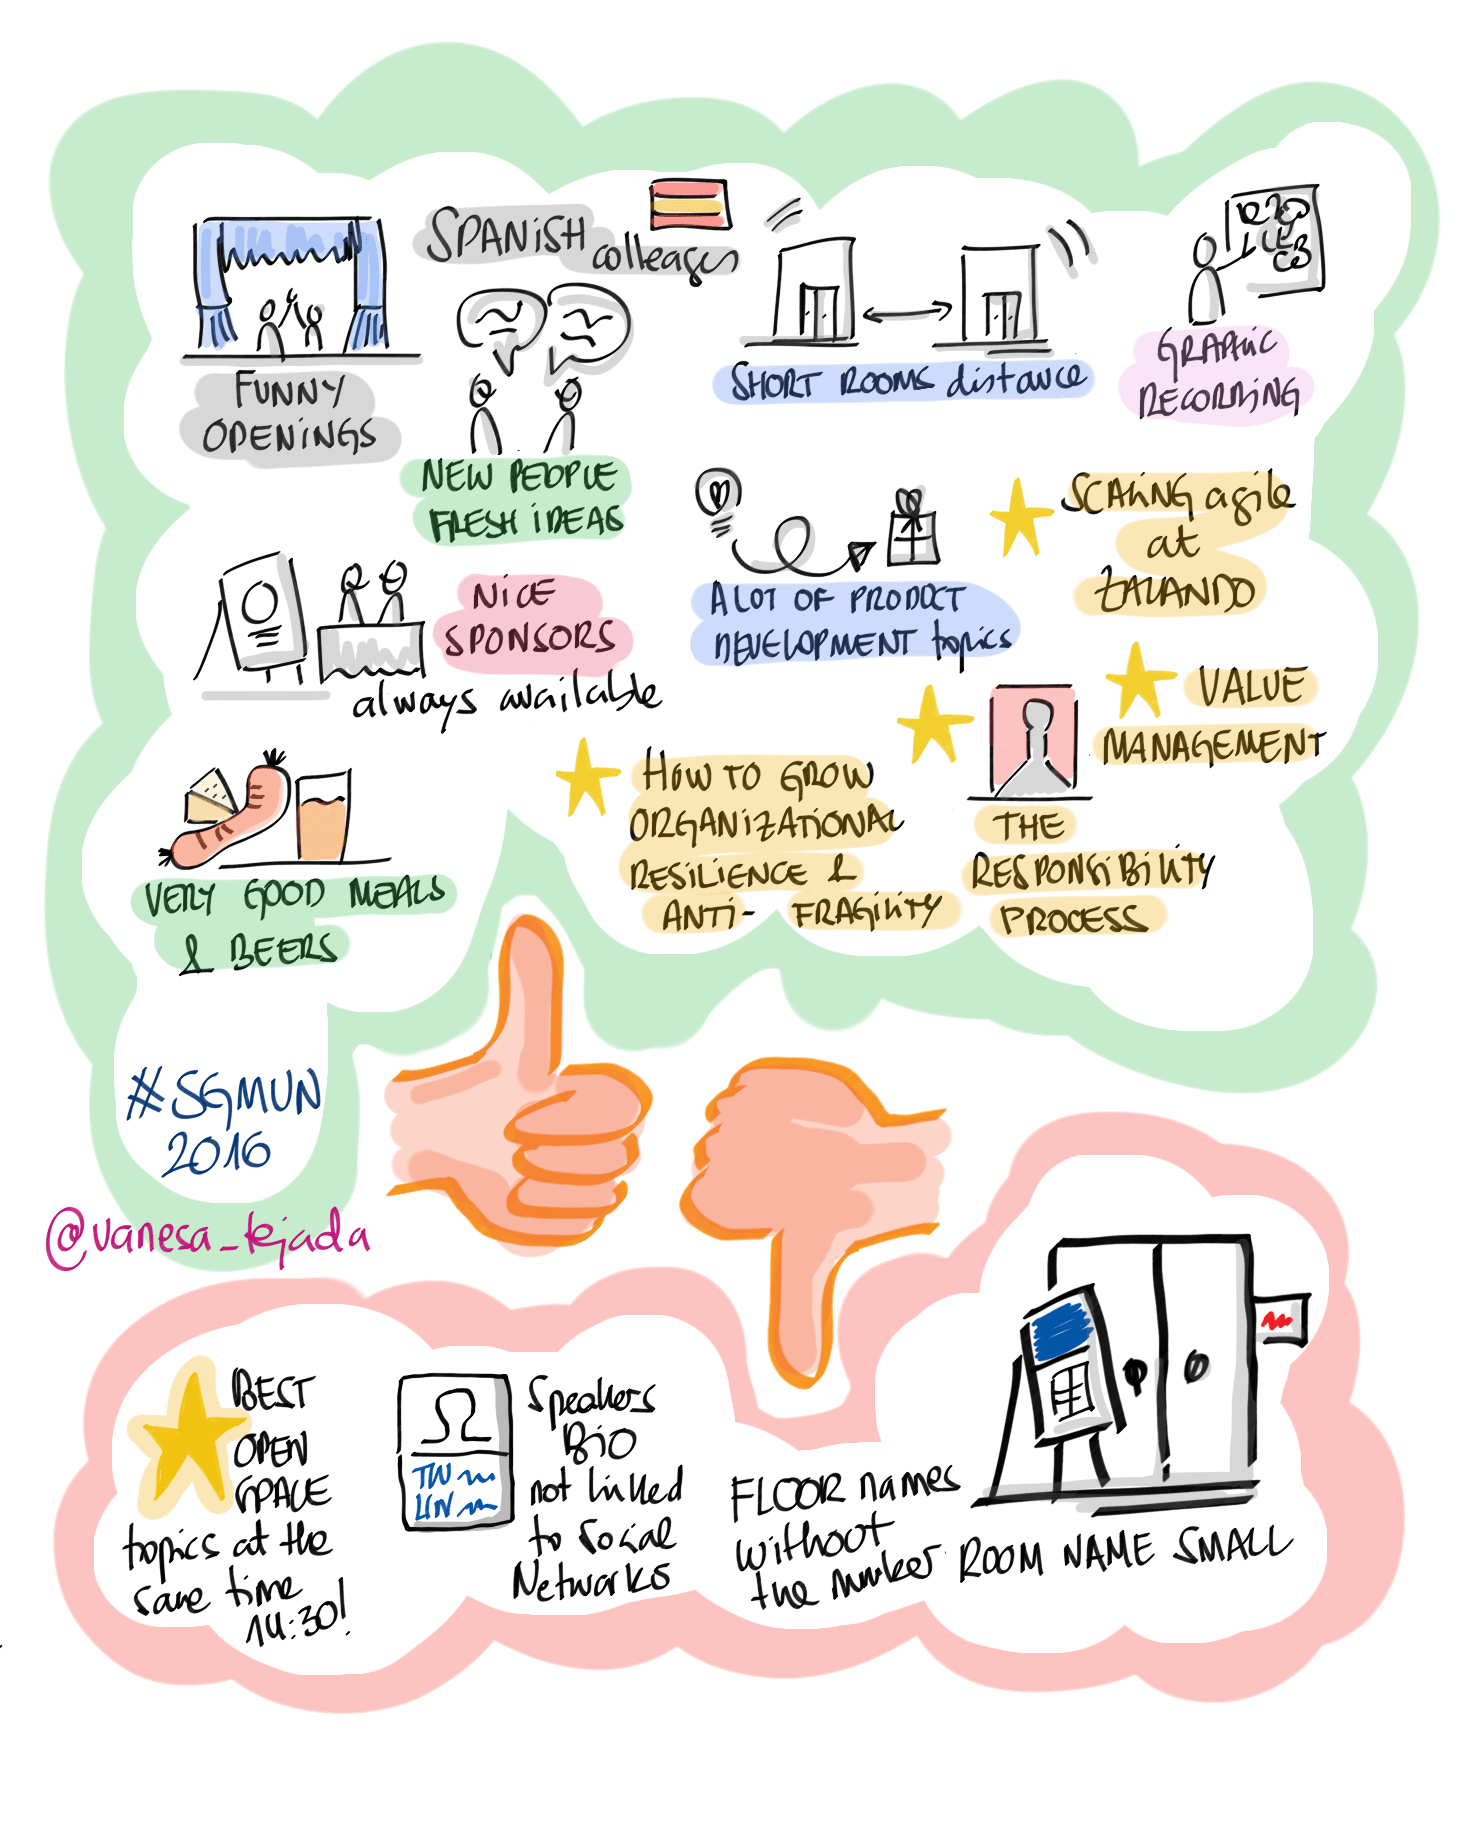 SPANiSH
colleages
FUNNY
OPENiNGS
NEW PEOPLE
FRESH iDEAS
SHORT ROOMS distance
GRAPHiC
RECORDiNG
NiCE
SPONSORS
always available
A LOT OF PRODUCT
DEVELOPMENT topics
SCALiNG agile
at
ZALANDO
VALUE
MANAGEMENT
HOW TO GROW
ORGANiZATiONAL
RESiLiENCE &
ANTi- FRAGiliTY
THE
RESPONSiBiLiTY
PROCESS
VERY GOOD MEALS
& BEERS
#SGMUN
2016
@vanesa_tejada
BEST
OPEN
SPACE
topics at the
same time
14:30!
TW
LIN
Speakers
BiO
not linked
to Social
Networks
FLOOR names
without
the number
ROOM NAME SMALL